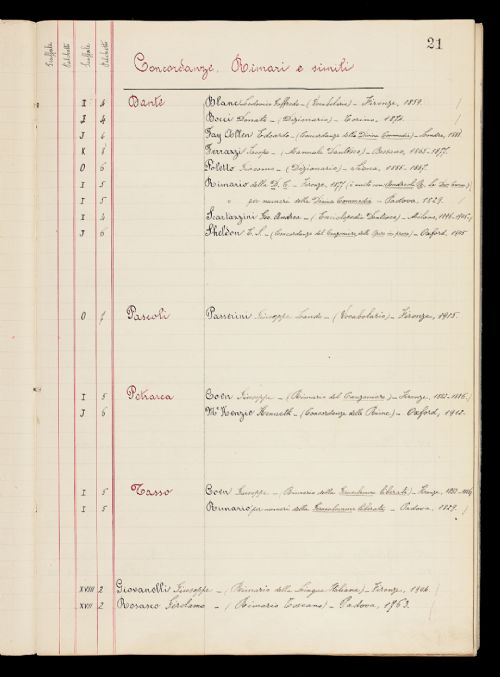 21
Scaffale Palchetti Scaffale Palchetti
Concordanze, Rimari e simili
I 4 Dante Blanc Lodovico Goffredo - (Vocabolario) - Firenze, 1859. /
J 4 Bocci Donato - (Dizionario) - Torino, 1873. /
J 6 Fay Allen Edoardo - (Concordanza della Divina Commedia) - Londra, 1888
K 8 Ferrazzi Jacopo - (Manuale Dantesco) - Bassano, 1865-1877.
O 6 Poletto Giacomo - (Dizionario) - Siena, 1885-1887.
I 5 Rimario della D. C. - Firenze, 1877 (è unito con
I 5 " per numeri della Divina Commedia - Padova, 1829. /
I 4 Scartazzini Gio. Andrea - (Enciclopedia Dantesca) - Milano, 1896-1905. /
J 6 Sheldon E. S. - (Concordanza del Canzoniere, delle Opere in prosa) - Oxford, 1905
O 7 Pascoli Passerini Giuseppe Lando - (Vocabolario) - Firenze, 1915.
I 5 Petrarca Coen Giuseppe - (Rimario del Canzoniere) - Firenze, 1885-1886. /
J 6 McKenzie Kenneth - (Concordanza delle Rime) - Oxford, 1912.
I 5 Tasso Coen Giuseppe - (Rimario della Gerusalemme liberata) - Firenze,
I 5 Rimario per numeri della Gerusalemme liberata - Padova, 1829. /
XVIII 2 Giovanelli Giuseppe - (Rimario della Lingua Italiana) - Firenze, 1904. /
XVII 2 Rosasco Gerolamo - (Rimario Toscano) - Padova, 1763. /